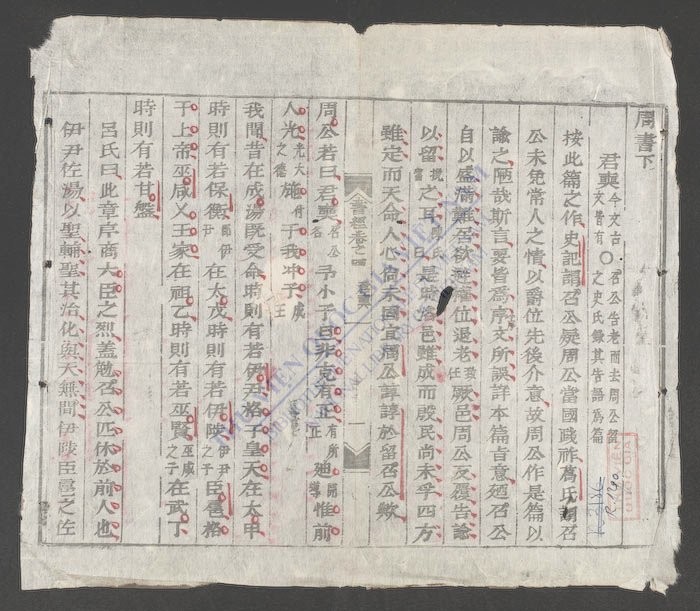 周書下
君奭 今文古文皆有 ○ 召公告老而去周公留之史氏錄其告語爲篇
按此篇之作史記謂召公疑周公當國踐祚葛氏謂召
公未免常人之情以爵位先後介意故周公作是篇以
諭之陋哉斯言要皆爲序文所誤詳本篇旨意廼召公
自以盛滿難居欲避權位退老厥邑周公反復告諭
以留之耳是時洛邑雖成而殷民尚未孚四方
雖定而天命人心尚未固宜周公諄諄於留召公歟
書經卷之四
君奭
一
周公若曰君奭 召公名 予小子旦非克有正 有所正 迪 開導 惟前
人光 光大之德 施 付 于我冲子 成王
我聞昔在成湯既受命時則有若伊尹格于皇天在太甲
時則有若保衡 即伊尹 在太戊時則有若伊陟 伊尹之子 臣扈格
于上帝巫咸乂王家在祖乙時則有若巫賢 巫咸之子 在武丁
時則有若甘盤
呂氏曰此章序商大臣之烈蓋勉召公匹休於前人也
伊尹佐湯以聖輔聖其治化與天無間伊陟臣扈之佐
R.1130
THU VIEN QUOC GIA VIET NAM
NATIONAL LIBRARY OF VIETNAM